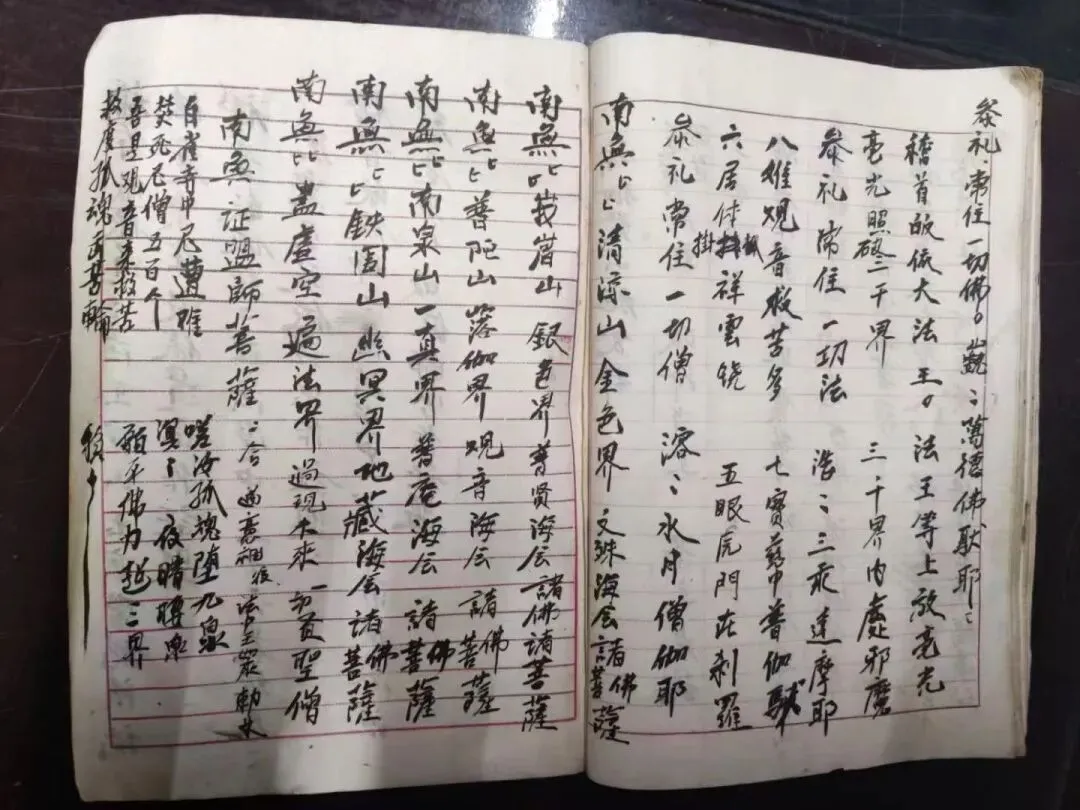 叅礼常住一切佛。巍〻萬德佛馱耶〻
稽首皈依大法王。法王等上放亮光
亮光照破二千界 三千界内處邪魔
叅礼常住一切法 浩〻三乘達摩耶
八難观音救苦多 七寶 中普伽馱
六居 掛 祥雲 五眼 門在刹羅
叅礼常住一切僧 溶〻水月僧伽耶
南無〻〻清凉山金色界文殊海会諸佛菩薩
南無〻〻峩嵋山銀色界普贤海会諸佛諸菩薩
南無〻〻普陀山落伽界观音海会諸佛菩薩
南無〻〻南泉山一真界普庵海会諸佛菩薩
南無〻〻鉄围山幽冥界地藏海会諸佛菩薩
南無〻〻盡虚空遍法界過現未來一切贤聖僧
南無证盟師菩薩
白雀寺中尼遭难 嗟汝孤魂堕九泉
焚死尼僧五百个 溟〻夜暗
善見观音來救苦 願乎佛力超三界
救度孤魂 苦輪